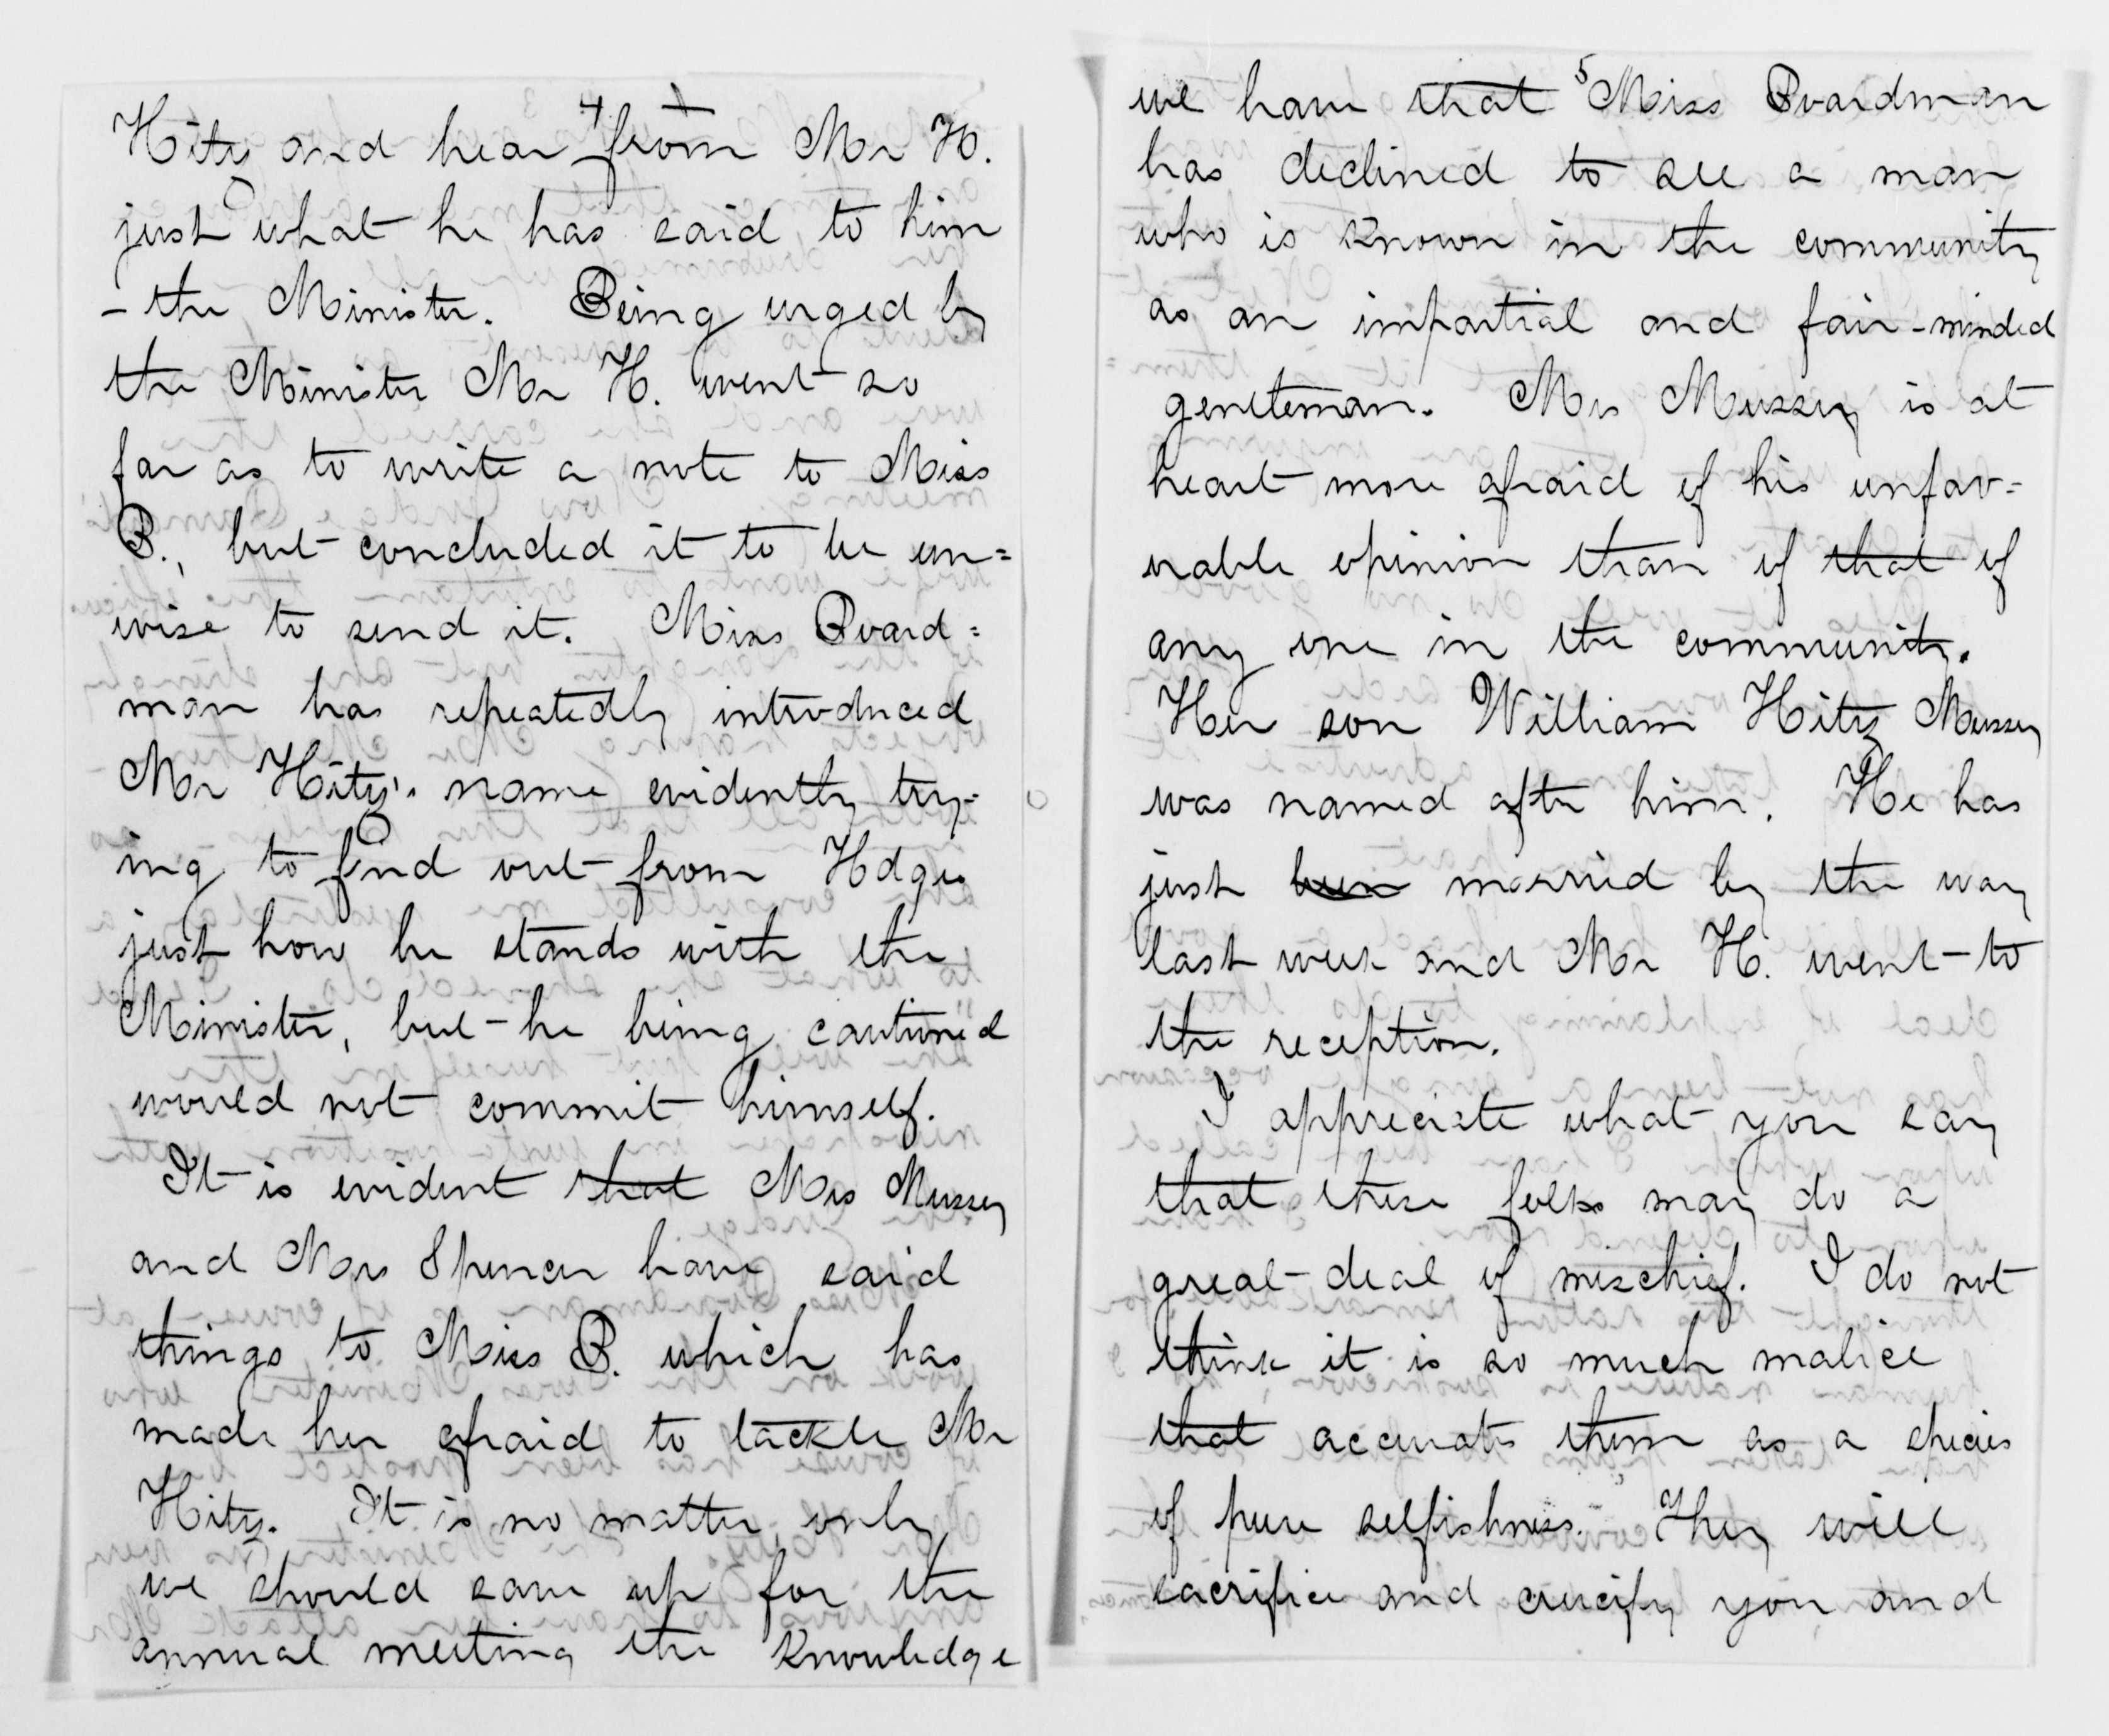 4
Hitz and hear from Mr H.
just what he has said to him
- the Minister. Being urged by
the Minister Mr H. went so
far as to write a note to Miss
B., but concluded it to be un=
wise to send it. Miss Board=
man has repeatedly introduced
Mr Hitz's name evidently try-
ing to find out from Hdqrs
just how he stands with the
Minister, but he being cautioned
would not commit himself.
It is evident that Mrs Mussey
and Mrs Spencer have said
things to Miss B. which has
made her afraid to tackle Mr
Hitz. It is no matter, only
we should save up for the
annual meeting the knowledge
5
we have that Miss Boardman
has declined to see a man
who is known in the community
as an impartial and fair-minded
gentleman. Mrs Mussey is at
heart more afraid of his unfav=
orable opinion than of that of
any one in the community.
Her son William Hitz Mussey
was named after him. He has
just been married by the way
last week and Mr H. went to
the reception.
I appreciate what you say
that these folks may do a
great deal of mischief. I do not
think it is so much malice
that accuates them as a species
of pure selfishness. They will
sacrifice and crucify you and